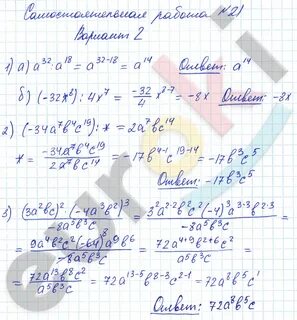 Самостоятельная работа №21
Вариант 2
1) а) a³² : a¹⁸ = a³²⁻¹⁸ = a¹⁴ Ответ: a¹⁴
б) (-32x⁸) : 4x⁷ = -32/4 x⁸⁻⁷ = -8x Ответ: -8x
2) (-34a⁷b⁴c¹⁹) : * = 2a⁷bc¹⁴
* = -34a⁷b⁴c¹⁹ / 2a⁷bc¹⁴ = -17b⁴⁻¹c¹⁹⁻¹⁴ = -17b³c⁵
Ответ: -17b³c⁵
3) (3a²bc)²·(-4a³b²)³ / -8a⁵b³c = 3²a²·²b²c²(-4)³a³·³b²·³ / -8a⁵b³c =
= 9a⁴b²c²(-64)a⁹b⁶ / -8a⁵b³c = 72a⁴⁺⁹b²⁺⁶c² / a⁵b³c =
= 72a¹³b⁸c² / a⁵b³c = 72a¹³⁻⁵b⁸⁻³c²⁻¹ = 72a⁸b⁵c¹
Ответ: 72a⁸b⁵c
euroki